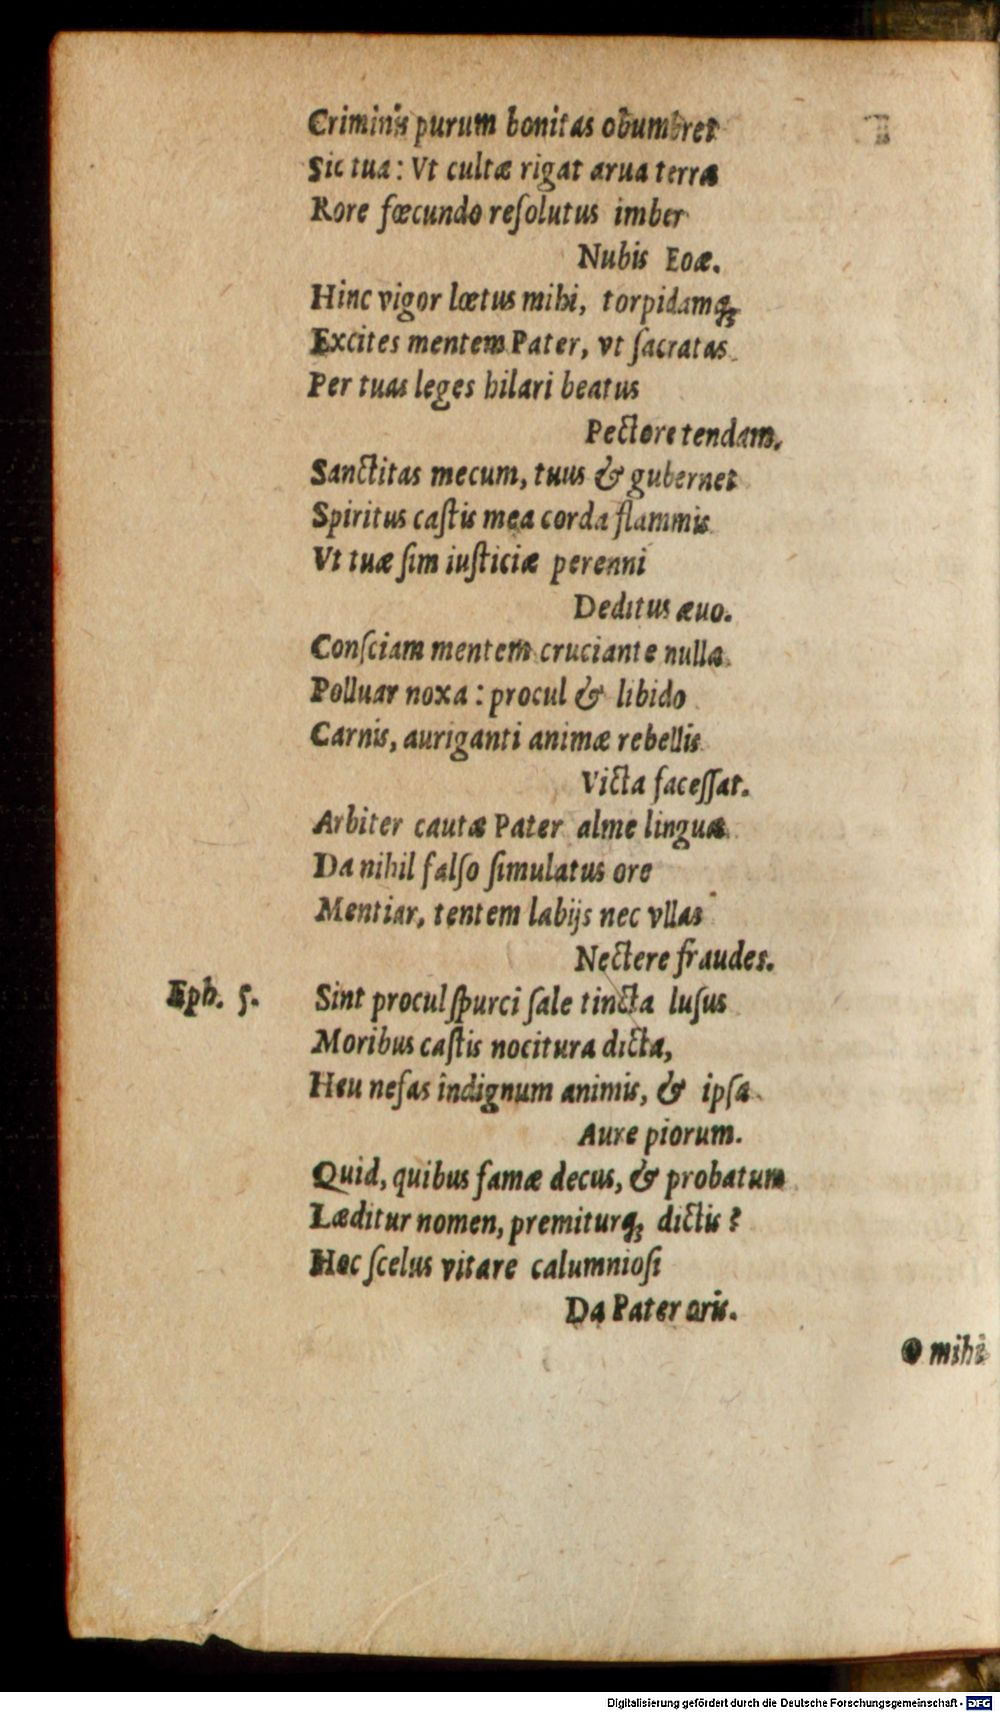 Criminis purum bonitas obumbret
Sic tua: Vt cultæ rigat arua terræ
Rore fœcundo reſolutus imber
Nubis Eoæ.
Hinc vigor lætus mihi, torpidamq́;
Excites mentem Pater, vt ſacratas
Per tuas leges hilari beatus
Pectore tendam.
Sanctitas mecum, tuus & gubernet
Spiritus caſtis mea corda flammis
Vt tuæ ſim iuſticiæ perenni
Deditus æuo.
Conſciam mentem cruciante nulla
Polluar noxa: procul & libido
Carnis, auriganti animæ rebellis
Victa faceſſat.
Arbiter cautæ Pater alme linguæ
Da nihil falſo ſimulatus ore
Mentiar, tentem labijs nec vllas
Nectere fraudes.
Eph. 5. Sint procul ſpurci ſale tincta luſus
Moribus caſtis nocitura dicta,
Heu nefas indignum animis, & ipſa
Aure piorum.
Quid, quibus famæ decus, & probatum
Læditur nomen, premiturq́; dictis?
Hoc ſcelus vitare calumnioſi
Da Pater oris.
O mihi
Digitalisierung gefördert durch die Deutsche Forschungsgemeinschaft - DFG